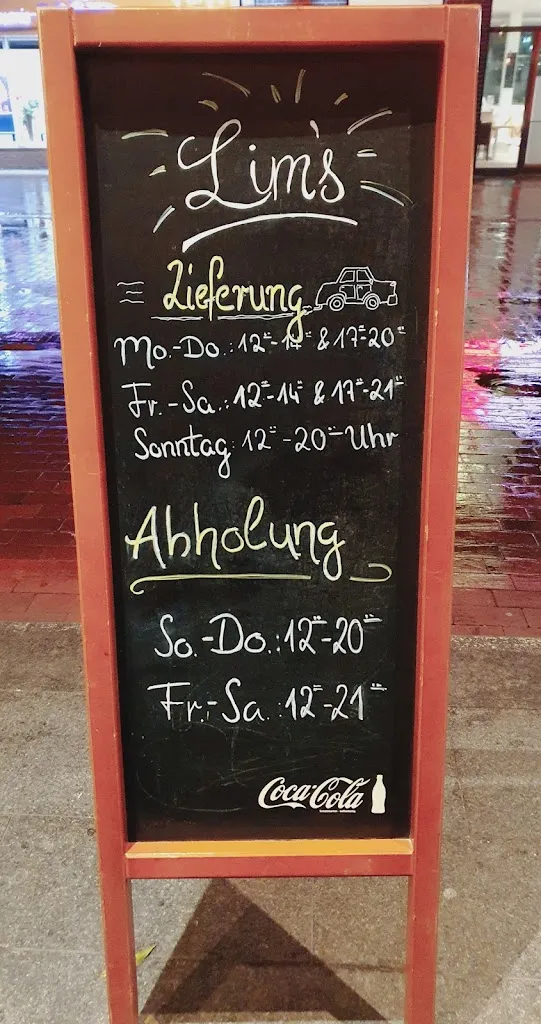 Lim's
Lieferung
Mo.-Do.: 12⁰⁰-14⁰⁰ & 17⁰⁰-20⁰⁰
Fr.-Sa.: 12⁰⁰-14⁰⁰ & 17⁰⁰-21⁰⁰
Sonntag: 12⁰⁰-20⁰⁰ Uhr
Abholung
So.-Do.: 12⁰⁰-20⁰⁰
Fr.-Sa.: 12⁰⁰-21⁰⁰
Coca-Cola